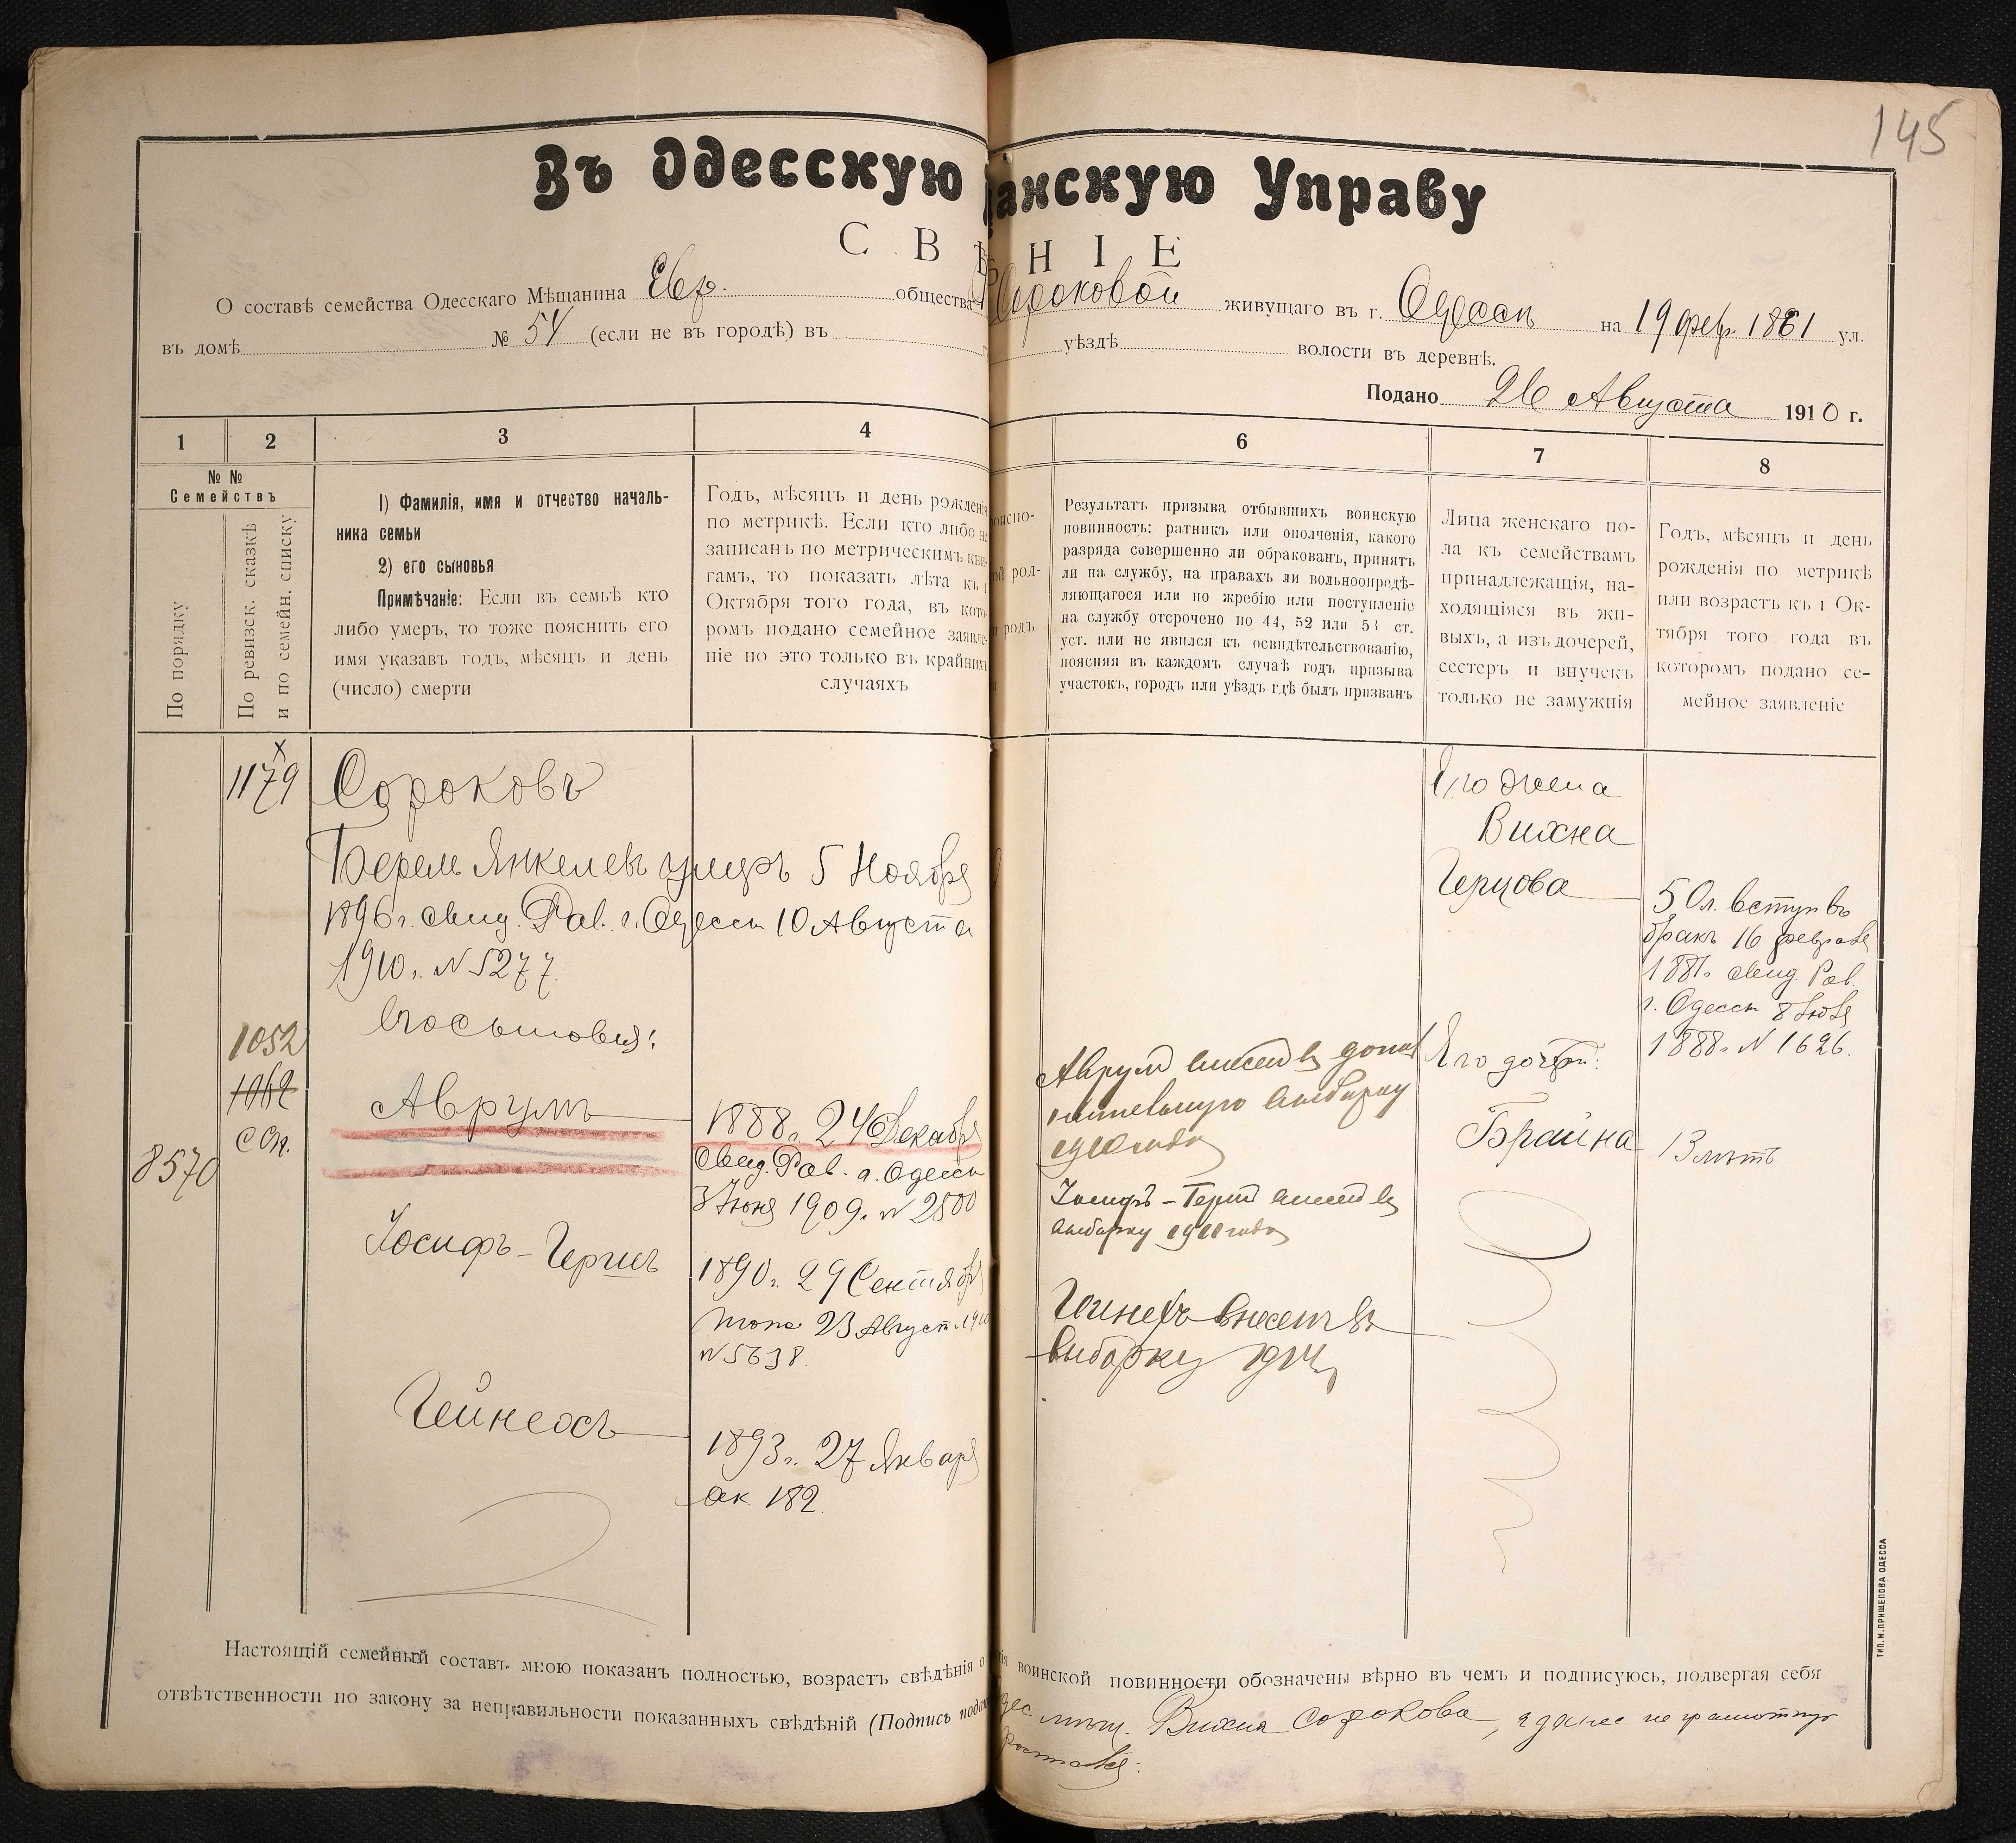 145
Въ Одесскую
данскую Управу
С В Ѣ
Н І Е
О составѣ семейства Одесскаго Мѣщанина Евр. общества
Сороковой живущаго въ г. Одессѣ на 19 февр. 1861 ул.
въ домѣ № 54 (если не въ городѣ) въ
уѣздѣ волости въ деревнѣ.
Подано 26 Августа 1910 г.
1
2
3
4
6
7
8
№ №
Семействъ
По порядку
По ревизск. сказкѣ
и по семейн. списку
1) Фамилія, имя и отчество началь-
ника семьи
2) его сыновья
Примѣчаніе: Если въ семьѣ кто
либо умеръ, то тоже пояснить его
имя указавъ годъ, мѣсяцъ и день
(число) смерти
Годъ, мѣсяцъ и день рожденія
по метрикѣ. Если кто либо не
записанъ по метрическимъ кни-
гамъ, то показать лѣта къ 1
Октября того года, въ кото-
ромъ подано семейное заявле-
ніе но это только въ крайнихъ
случаяхъ
Результатъ призыва отбывшихъ воинскую
повинность: ратникъ или ополченія, какого
разряда совершенно ли обракованъ, принятъ
ли на службу, на правахъ ли вольноопредѣ-
ляющагося или по жребію или поступленіе
на службу отсрочено по 44, 52 или 53 ст.
уст. или не явился къ освидѣтельствованію,
поясняя въ каждомъ случаѣ годъ призыва
участокъ, городъ или уѣздъ гдѣ былъ призванъ
Лица женскаго по-
ла къ семействамъ
принадлежащія, на-
ходящіяся въ жи-
выхъ, а изъ дочерей,
сестеръ и внучекъ
только не замужнія
Годъ, мѣсяцъ и день
рожденія по метрикѣ
или возрастъ къ 1 Ок-
тября того года въ
которомъ подано се-
мейное заявленіе
1179
Сороковъ
Берель Янкелевъ умеръ 5 Ноября
1896 г. свид. Рав. г. Одессы 10 Августа
1910 г. N 5277.
Его сыновья:
1052
1062
сп.
8570
Аврумъ
1888 г. 24 Декабря
Свид. Рав. г. Одессы
3 Іюня 1909 г. N 2500
Іосифъ-Гершъ
1890 г. 29 Сентября
тоже 23 Август. 1910
N 5638.
Гейнехъ
1893 г. 27 Января
ак. 182.
Аврумъ внесенъ въ допол
нительную выборку
1910 года
Іосифъ-Гершъ внесенъ въ
выборку 1911 года
Гейнехъ внесенъ въ
выборку 1914 г.
Его жена
Вихна
Герцова
50 л. вступ. въ
бракъ 16 февраля
1881 г. свид. Рав.
г. Одессы 8 Іюля
1888 г. N 1626.
Его дочери:
Брайна
13 лѣтъ
Настоящій семейный составъ мною показанъ полностью, возрастъ свѣдѣнія о
воинской повинности обозначены вѣрно въ чемъ и подписуюсь, подвергая себя
отвѣтственности по закону за неправильности показанныхъ свѣдѣній (Подпись пода
мѣщ. Вихна Сорокова, а за нее неграмотную
ТИП. М. ПРИЩЕПОВА ОДЕССА